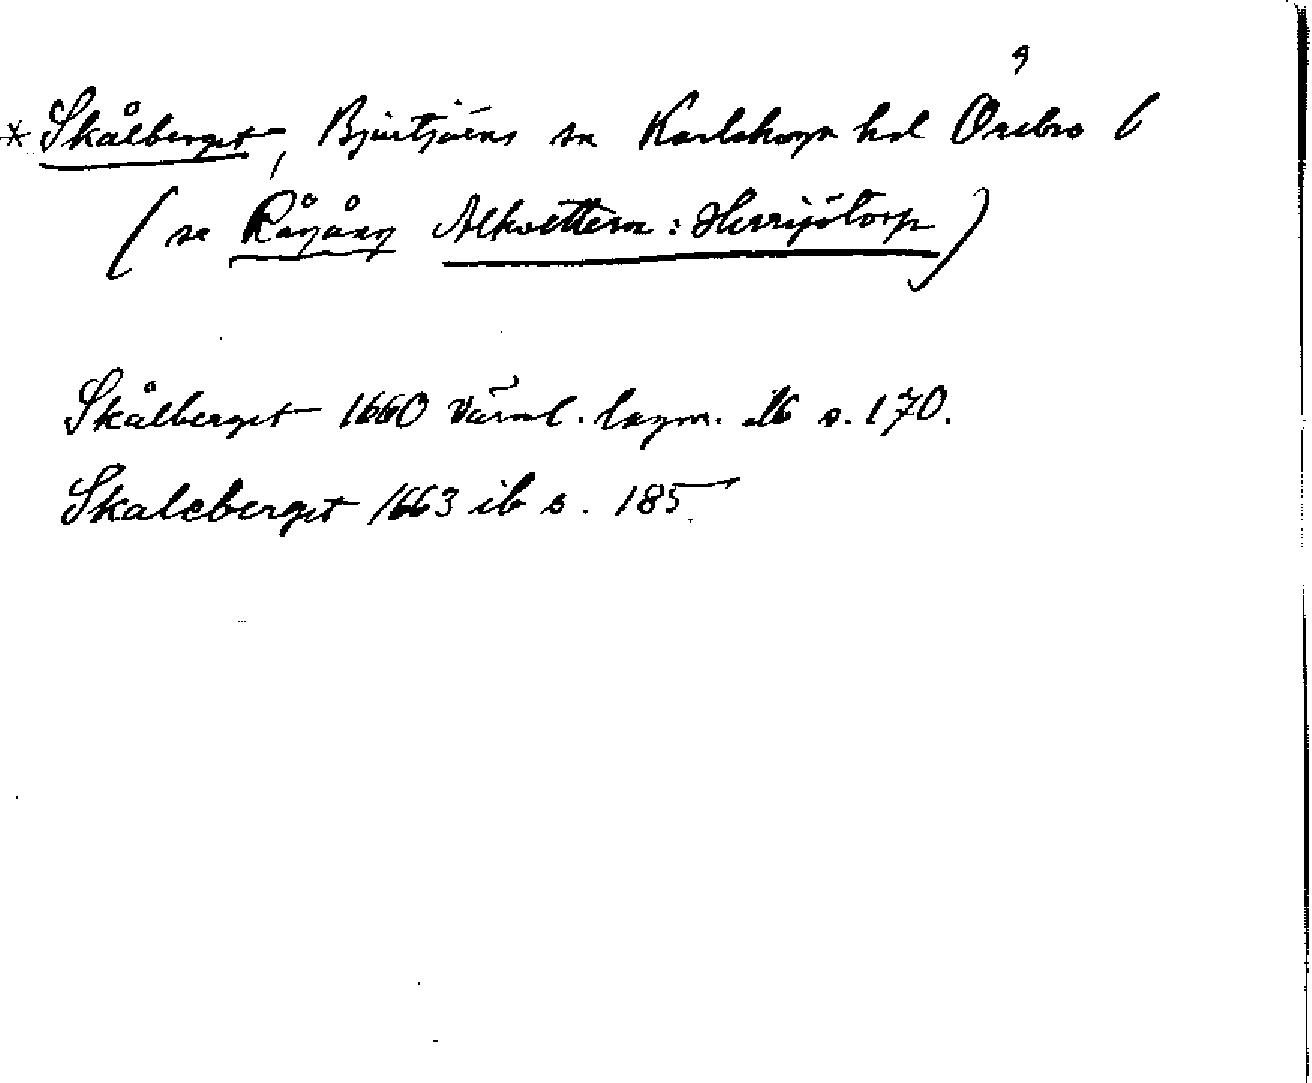 * Skålberget, Bjurtjärns sn Karlskoga hd Örebro l
(se Rågång Alkvettern: Herrsjötorp)
Skålberget 1660 Värml. lagm. 16 s. 170.
Skaleberget 1663 ib s. 185